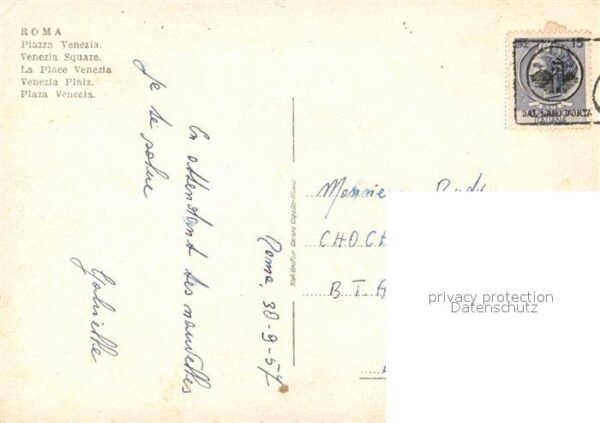 ROMA
Piazza Venezia.
Venezia Square.
La Place Venezia
Venezia Platz.
Plaza Venecia.
LIRE 15
ITALIANA
En attendant tes nouvelles
je te salue
Gabrielle
Roma, 30-9-57
Monsieur
CHOC
B I
privacy protection
Datenschutz